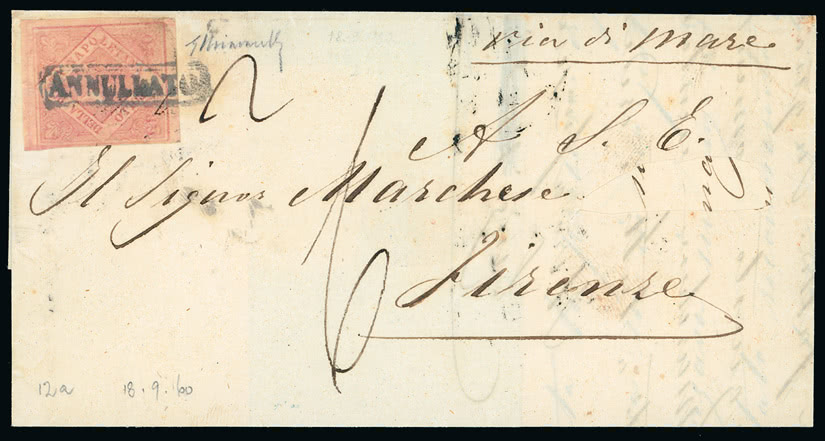 via di mare
NAPOLETA
ANNULLATO
DELLA
2
A S. E.
Il Signor Marchese
6
Firenze
12a 18.9.60